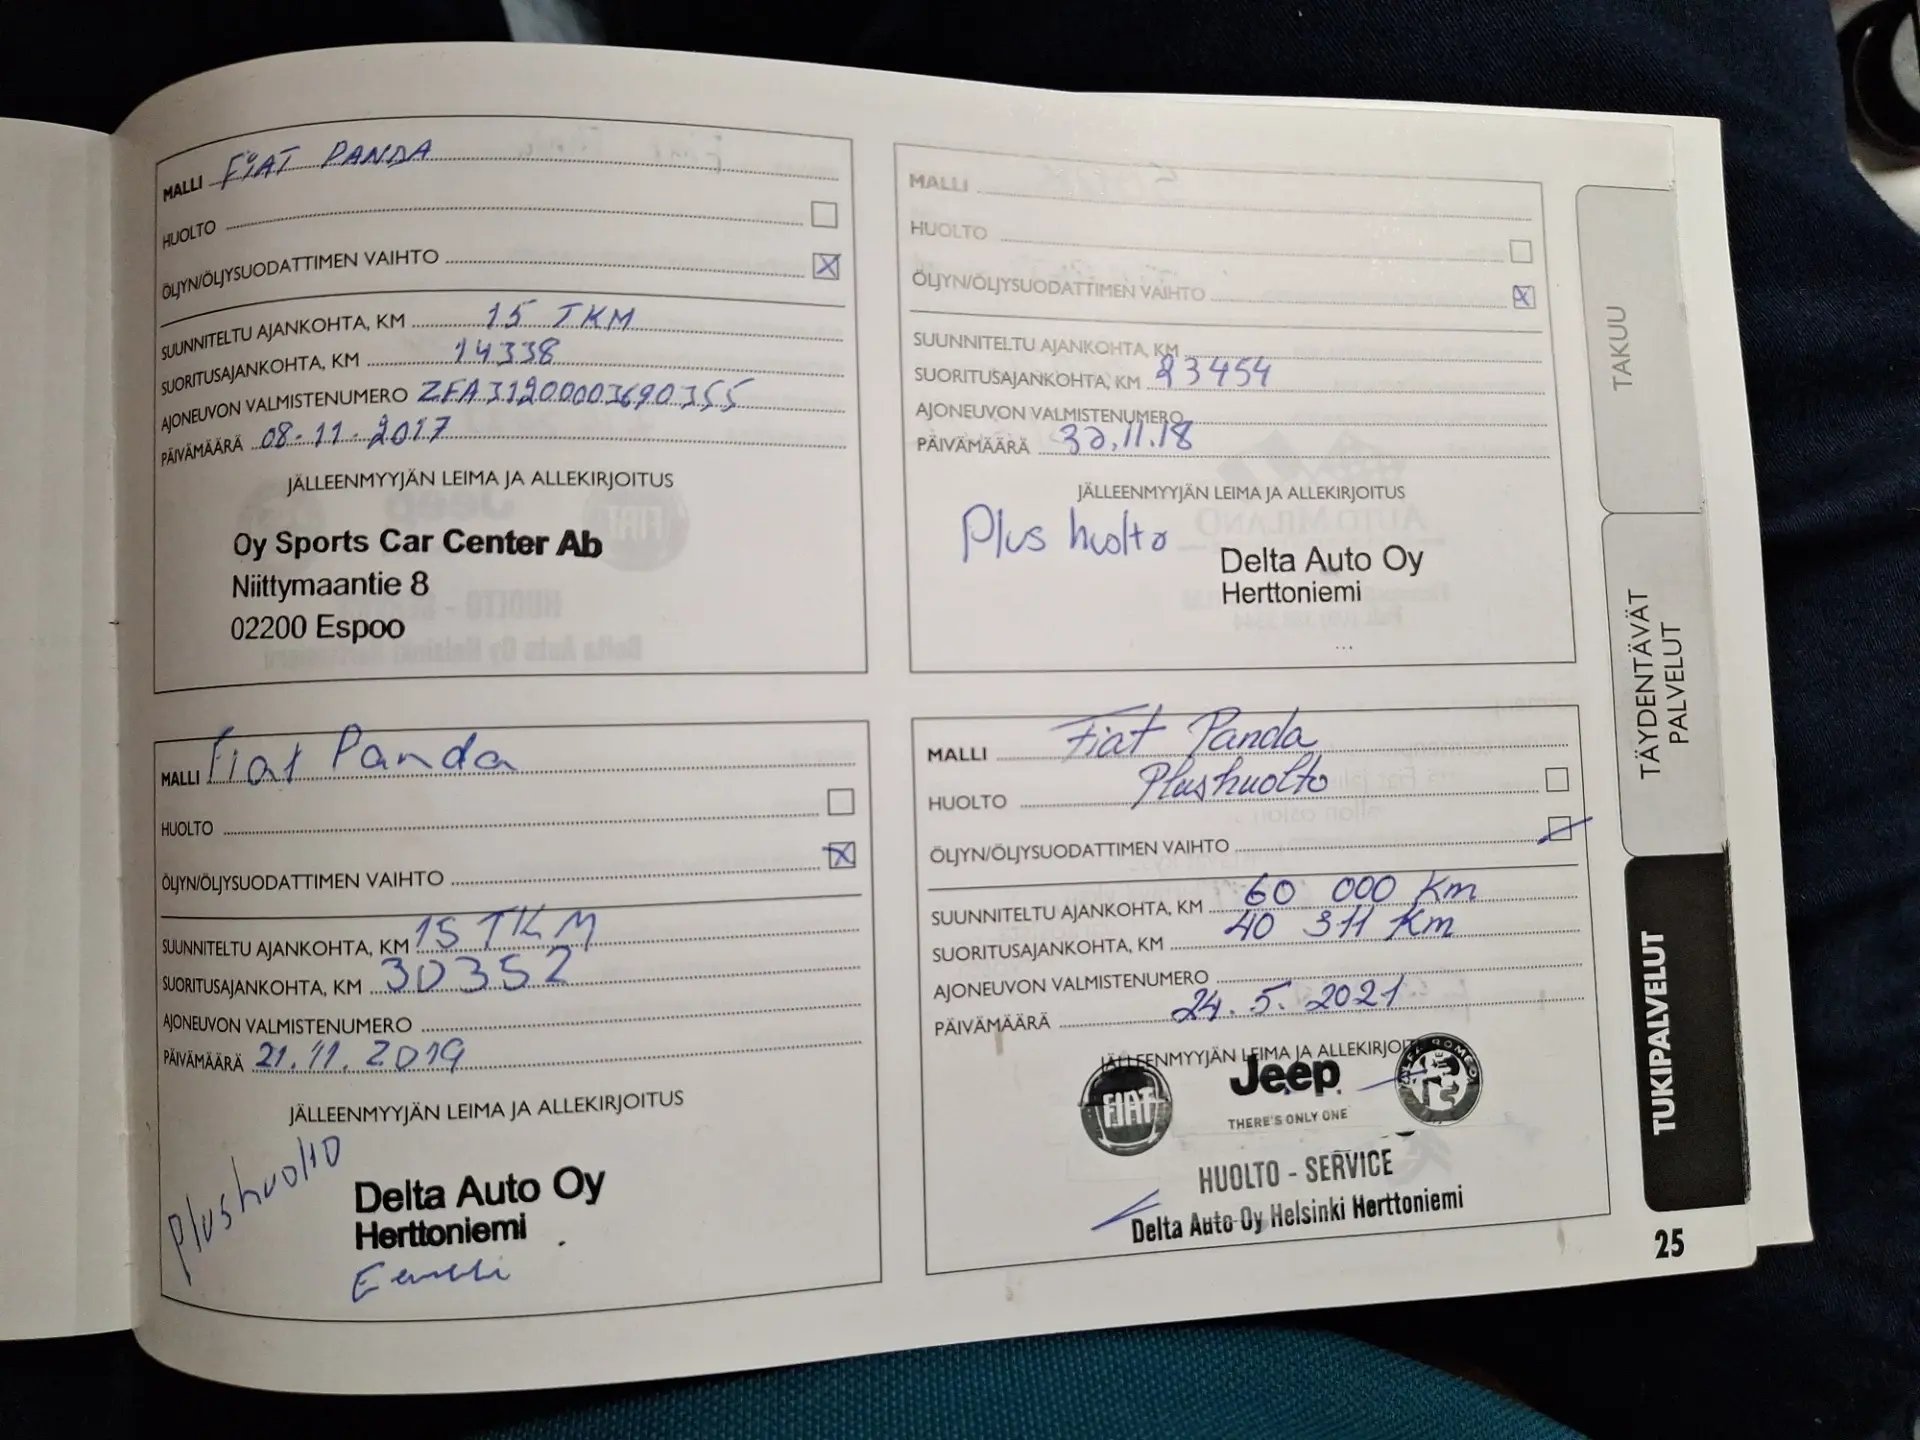 MALLI FIAT PANDA
HUOLTO
ÖLJYN/ÖLJYSUODATTIMEN VAIHTO
SUUNNITELTU AJANKOHTA, KM 15 TKM
SUORITUSAJANKOHTA, KM 14338
AJONEUVON VALMISTENUMERO ZFA31200003690355
PÄIVÄMÄÄRÄ 08-11-2017
JÄLLEENMYYJÄN LEIMA JA ALLEKIRJOITUS
Oy Sports Car Center Ab
Niittymaantie 8
02200 Espoo
MALLI
HUOLTO
ÖLJYN/ÖLJYSUODATTIMEN VAIHTO
SUUNNITELTU AJANKOHTA, KM
SUORITUSAJANKOHTA, KM 23454
AJONEUVON VALMISTENUMERO
PÄIVÄMÄÄRÄ 30.11.18
JÄLLEENMYYJÄN LEIMA JA ALLEKIRJOITUS
Plus huolto
Delta Auto Oy
Herttoniemi
MALLI Fiat Panda
HUOLTO
ÖLJYN/ÖLJYSUODATTIMEN VAIHTO
SUUNNITELTU AJANKOHTA, KM 15 TKM
SUORITUSAJANKOHTA, KM 30352
AJONEUVON VALMISTENUMERO
PÄIVÄMÄÄRÄ 21.11.2019
JÄLLEENMYYJÄN LEIMA JA ALLEKIRJOITUS
Plushuolto
Delta Auto Oy
Herttoniemi
MALLI Fiat Panda
HUOLTO Plushuolto
ÖLJYN/ÖLJYSUODATTIMEN VAIHTO
SUUNNITELTU AJANKOHTA, KM 60 000 Km
SUORITUSAJANKOHTA, KM 40 311 Km
AJONEUVON VALMISTENUMERO
PÄIVÄMÄÄRÄ 24.5.2021
JÄLLEENMYYJÄN LEIMA JA ALLEKIRJOIT
FIAT
Jeep
THERE'S ONLY ONE
HUOLTO - SERVICE
Delta Auto Oy Helsinki Herttoniemi
TAKUU
TÄYDENTÄVÄT
PALVELUT
TUKIPALVELUT
25